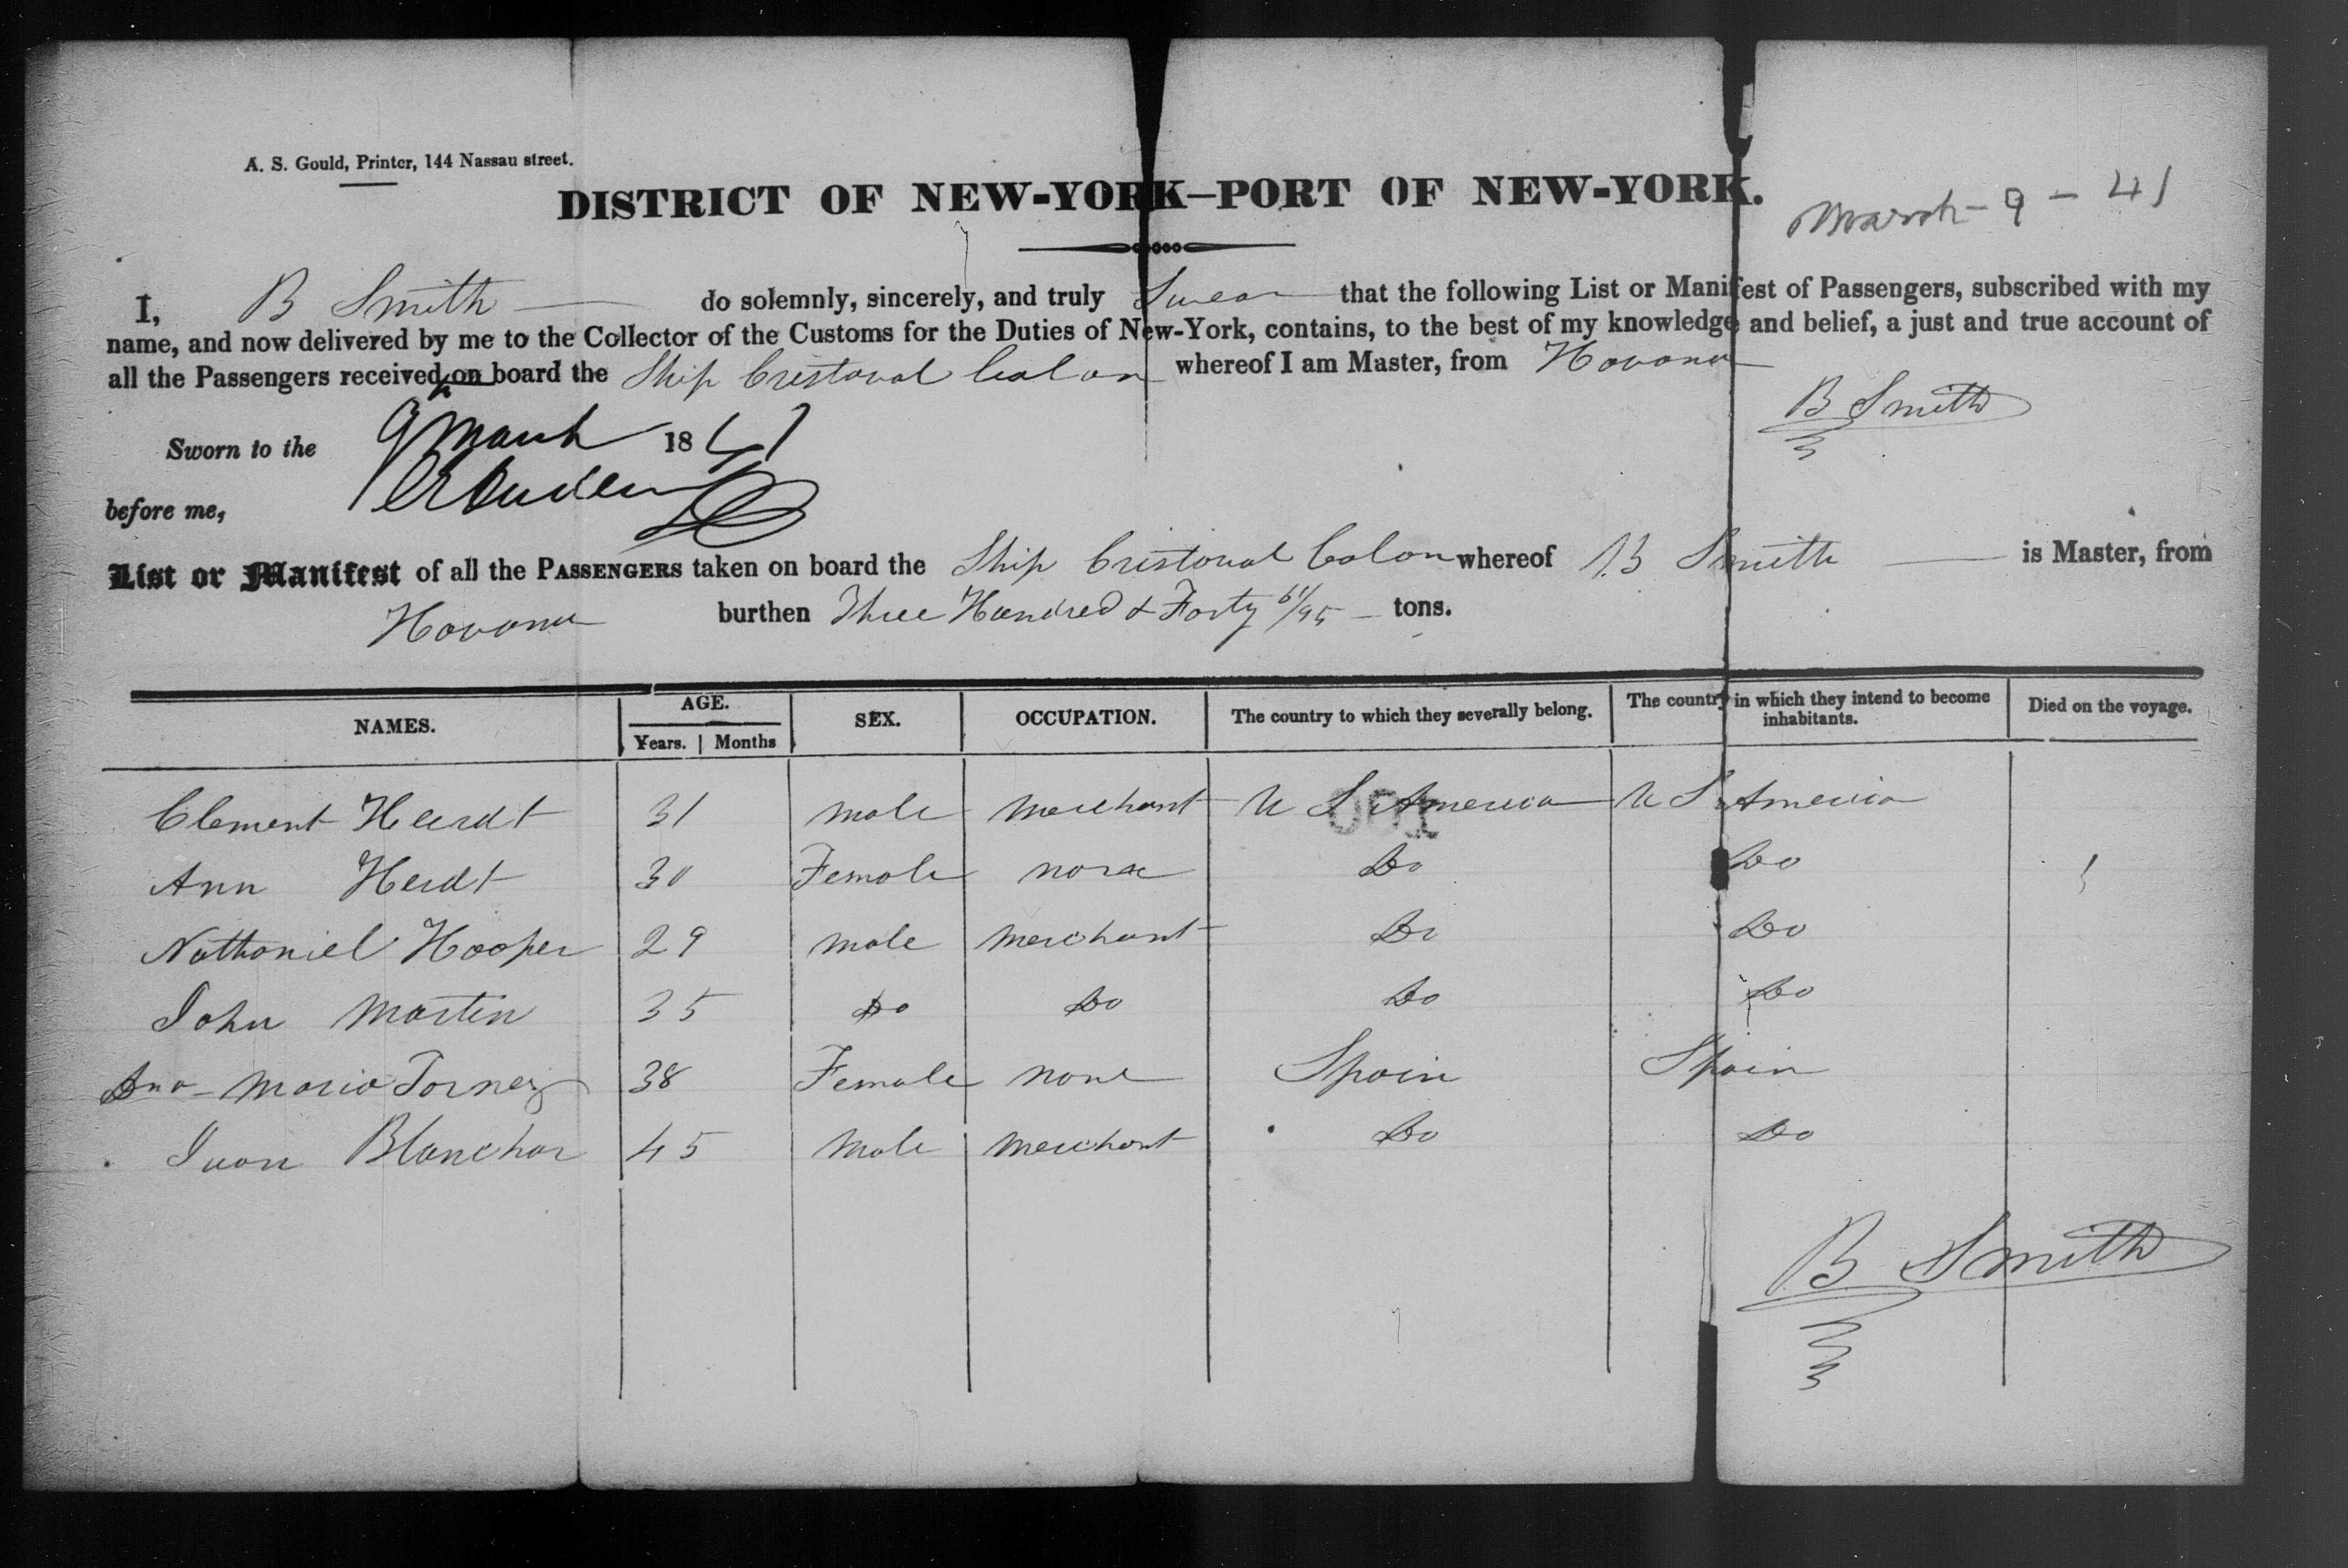 A. S. Gould, Printer, 144 Nassau street.
DISTRICT OF NEW-YORK—PORT OF NEW-YORK.
March - 9 - 41
I, B Smith do solemnly, sincerely, and truly Swear that the following List or Manifest of Passengers, subscribed with my
name, and now delivered by me to the Collector of the Customs for the Duties of New-York, contains, to the best of my knowledge and belief, a just and true account of
all the Passengers received on board the Ship Cristoval Colon whereof I am Master, from Havana
B Smith
Sworn to the 9 March 1841
before me,
List or Manifest of all the PASSENGERS taken on board the Ship Cristoval Colon whereof B Smith is Master, from
Havana burthen Three Hundred & Forty 61/95 tons.
NAMES. AGE. Years. Months SEX. OCCUPATION. The country to which they severally belong. The country in which they intend to become inhabitants. Died on the voyage.
Clement Heerdt 31 Male Merchant U S America U S America
001
Ann Herdt 30 Female none Do Do
Nathaniel Hooper 29 Male Merchant Do Do
John Martin 35 Do Do Do Do
Ana Maria 38 Female none Spain Spain
Juan Blanchar 45 Male Merchant Do Do
B Smith